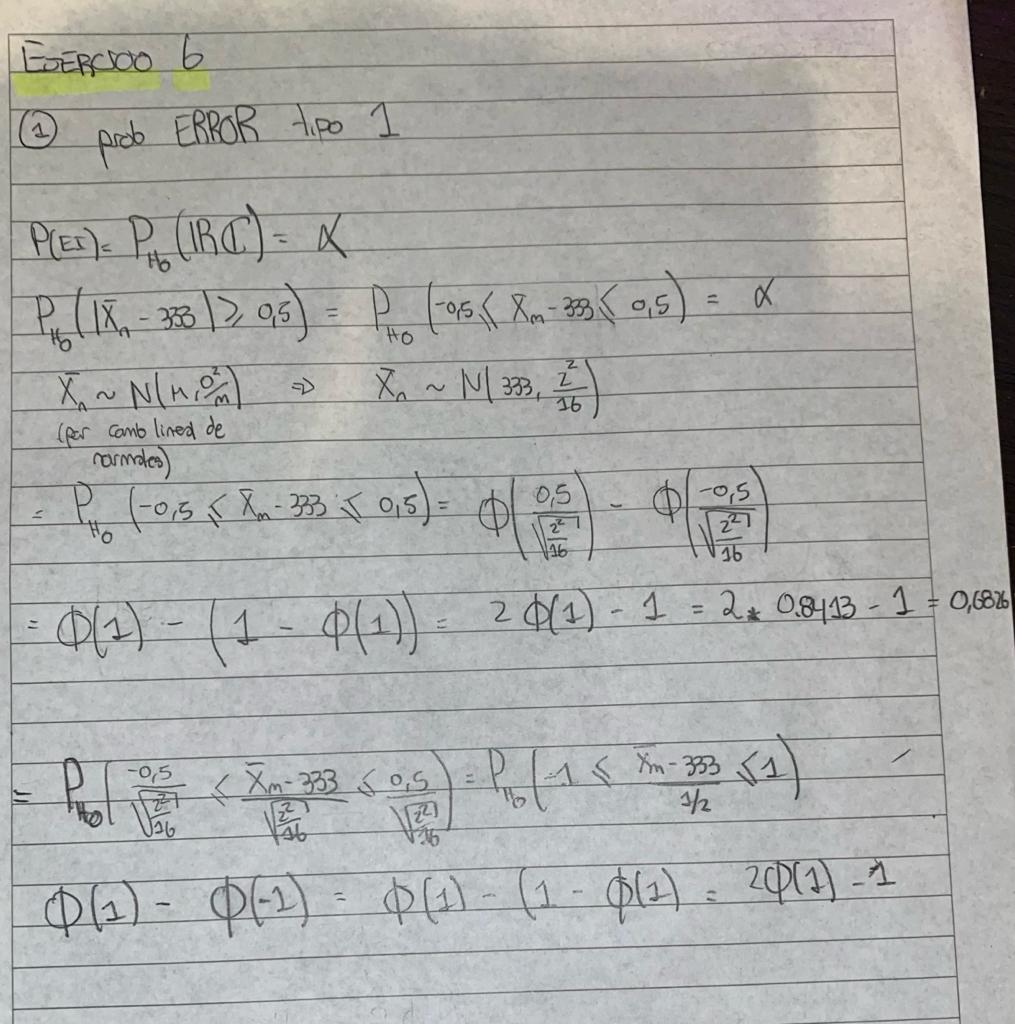 EJERCICIO 6
① prob ERROR tipo 1
P(EI) = P_H0 (IRC) = α
P_H0 (|X̄n - 333| ≥ 0,5) = P_H0 (-0,5 ≤ X̄n - 333 ≤ 0,5) = α
X̄n ~ N(μ, σ²/n) ⇒ X̄n ~ N(333, 2²/16)
(por comb lineal de
normales)
= P_H0 (-0,5 ≤ X̄n - 333 ≤ 0,5) = Φ(0,5/√(2²/16)) - Φ(-0,5/√(2²/16))
= Φ(1) - (1 - Φ(1)) = 2Φ(1) - 1 = 2 * 0.8413 - 1 = 0,6826
= P_H0 (-0,5/√(2²/16) ≤ X̄n - 333/√(2²/16) ≤ 0,5/√(2²/16)) = P_H0 (-1 ≤ X̄n - 333/1/2 ≤ 1)
Φ(1) - Φ(-1) = Φ(1) - (1 - Φ(1) = 2Φ(1) - 1